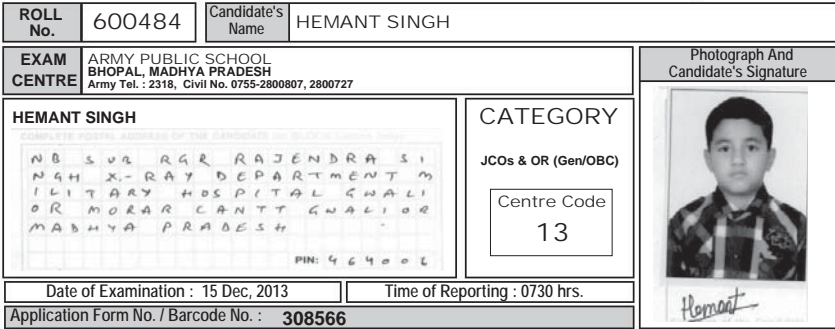 ROLL No. 600484 Candidate's Name HEMANT SINGH
EXAM CENTRE
ARMY PUBLIC SCHOOL
BHOPAL, MADHYA PRADESH
Army Tel. : 2318, Civil No. 0755-2800807, 2800727
Photograph And
Candidate's Signature
HEMANT SINGH
COMPLETE POSTAL ADDRESS OF THE CANDIDATE
NB SUB RGR RAJENDRA SI
NGH X-RAY DEPARTMENT M
ILITARY HOSPITAL GWALI
OR MORAR CANTT GWALIOR
MADHYA PRADESH
PIN:
CATEGORY
JCOs & OR (Gen/OBC)
Centre Code
13
Hemant
Date of Examination : 15 Dec, 2013
Time of Reporting : 0730 hrs.
Application Form No. / Barcode No. : 308566